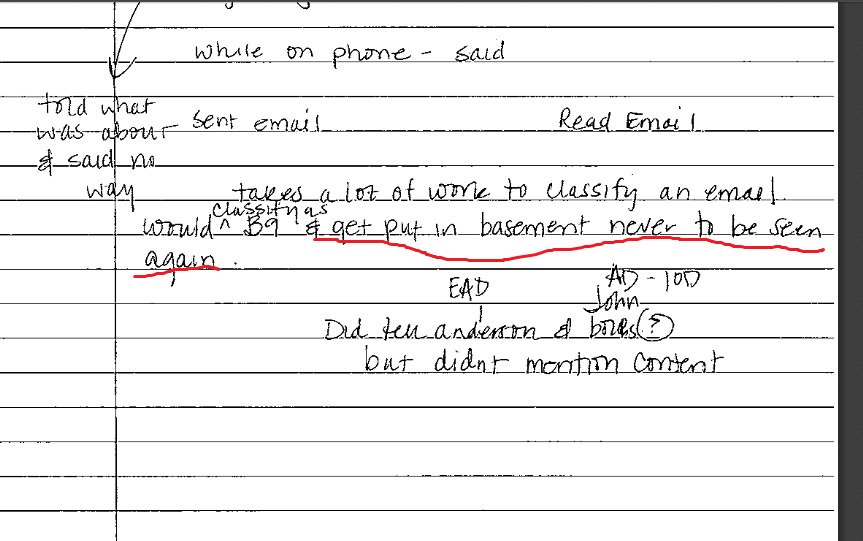 while on phone - said
told what
was about
& said no
way
sent email Read Email
takes a lot of work to classify an email.
would ^ classify as B9 & get put in basement never to be seen
again.
EAD AD - IOD
John
Did tell anderson & (?)
but didnt mention content